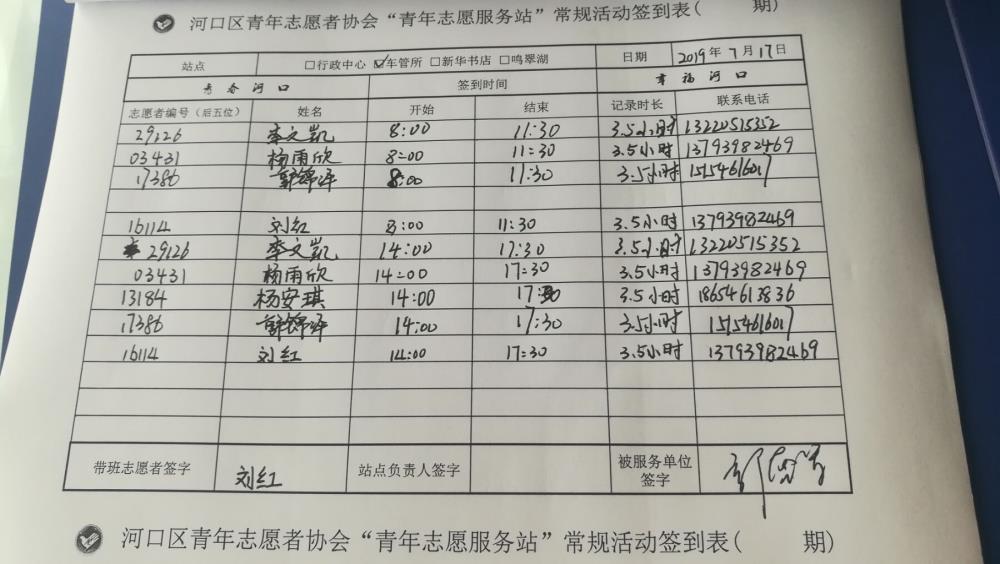 河口区青年志愿者协会“青年志愿服务站”常规活动签到表( 期)
站点 □行政中心 ☑车管所 □新华书店 □鸣翠湖 日期 2019年7月17日
青春河口 签到时间 幸福河口
志愿者编号（后五位） 姓名 开始 结束 记录时长 联系电话
29126 李文凯 8:00 11:30 3.5小时 13220515352
03431 杨雨欣 8:00 11:30 3.5小时 13793982469
17386 8:00 11:30 3.5小时 15154616017
16114 刘红 8:00 11:30 3.5小时 13793982469
29126 李文凯 14:00 17:30 3.5小时 13220515352
03431 杨雨欣 14:00 17:30 3.5小时 13793982469
13184 杨安琪 14:00 17:30 3.5小时 18654613836
17386 14:00 17:30 3.5小时 15154616017
16114 刘红 14:00 17:30 3.5小时 13793982469
带班志愿者签字 刘红 站点负责人签字 被服务单位签字
河口区青年志愿者协会“青年志愿服务站”常规活动签到表( 期)